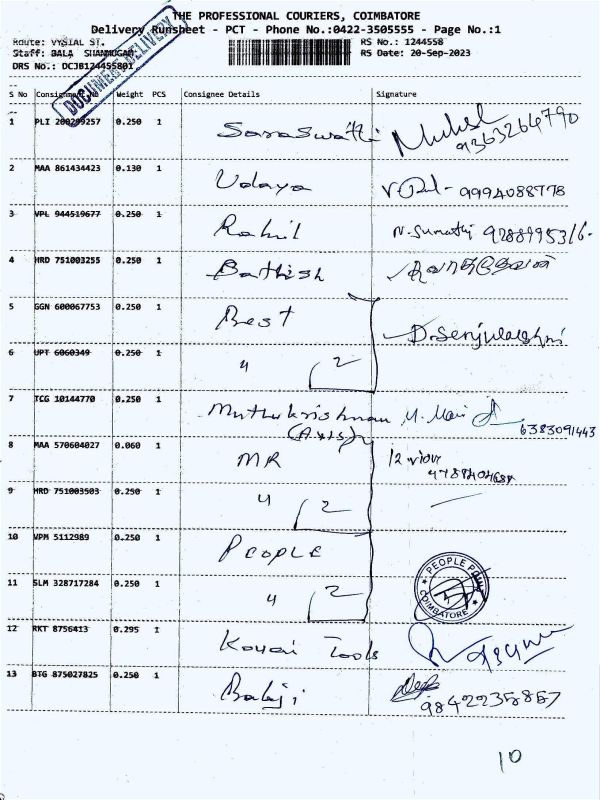 THE PROFESSIONAL COURIERS, COIMBATORE
Delivery Runsheet - PCT - Phone No.:0422-3505555 - Page No.:1
Route: VYSIAL ST. RS No.: 1244558
Staff: BALA SHANMUGAM RS Date: 20-Sep-2023
DRS No.: DCJB124455801
DOCUMENT DELIVERY
S No Consignment No Weight PCS Consignee Details Signature
1 PLI 200299257 0.250 1 Saraswathi 9363264790
2 MAA 861434423 0.130 1 Udaya 9994088778
3 VPL 944519677 0.250 1 Rahil N. Sumathi
4 HRD 751003255 0.250 1 Bathish
5 GGN 600067753 0.250 1 Best
6 UPT 6060349 0.250 1 " 2
7 TCG 10144770 0.250 1 Muthukrishnan M. Mari 6383091443
(AXIS)
8 MAA 570604027 0.060 1 MR
9 HRD 751003503 0.250 1 " 2
10 VPM 5112989 0.250 1 PEOPLE
PEOPLE POINT COIMBATORE
11 SLM 328717284 0.250 1 " 2
12 RKT 8756413 0.295 1 Kovai Tools
13 BTG 875027825 0.250 1 Balaji 9842235857
10